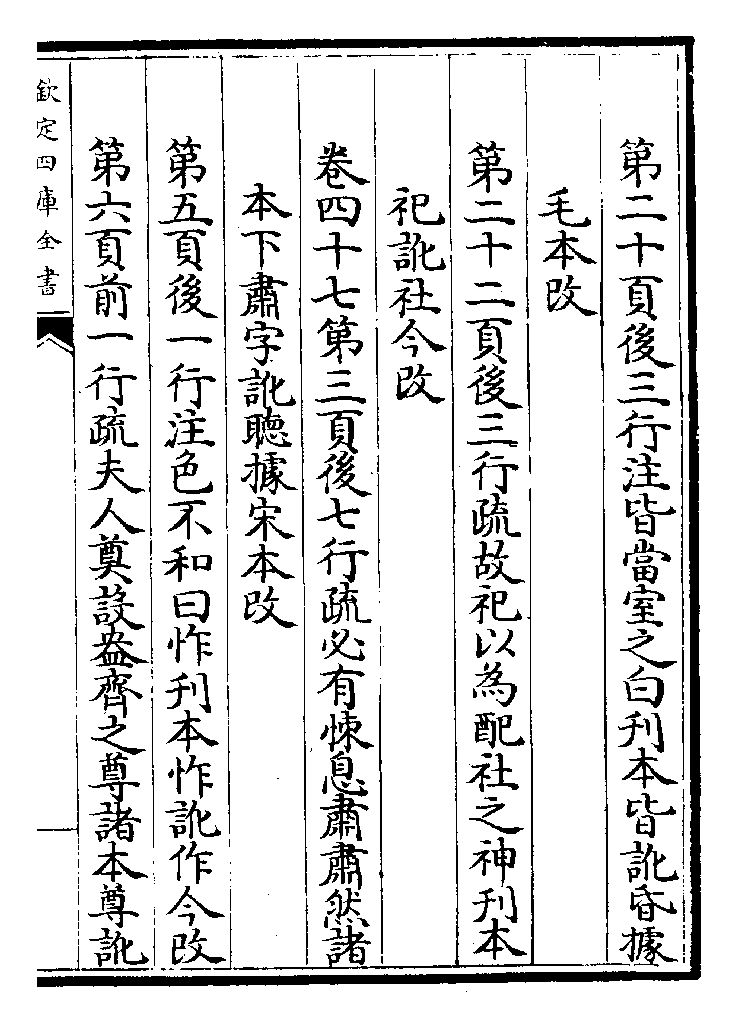 第二十頁後三行注皆當室之白刋本皆訛昏據
毛本改
第二十二頁後三行疏故祀以為配社之神刋本
祀訛社今改
卷四十七第三頁後七行疏必有悚息肅肅然諸
本下肅字訛聽據宋本改
第五頁後一行注色不和曰怍刋本怍訛作今改
第六頁前一行疏夫人奠設盎齊之尊諸本尊訛
欽定四庫全書